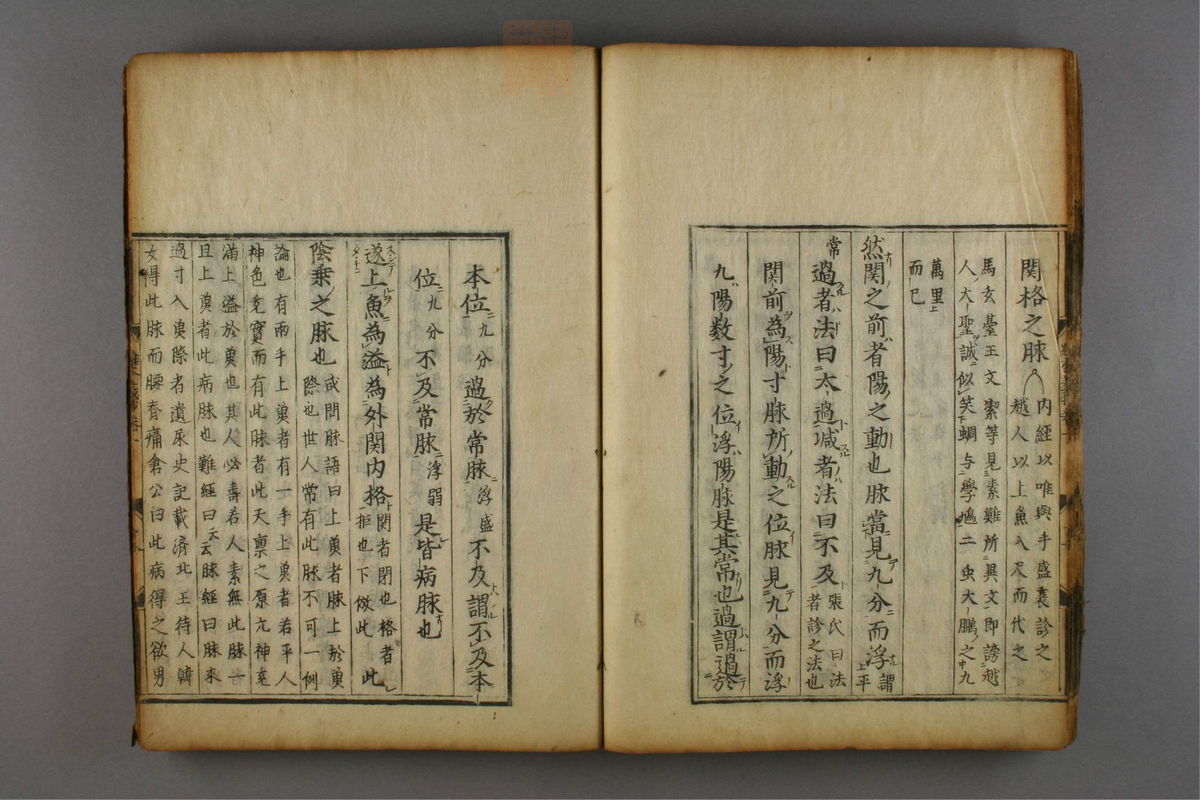 関格之脉 内經以唯與手盛衰診之
越人以上魚入尺而代之
馬玄臺王文潔等見素難所異文即謗越
人大聖誠似笑蜩与學鳩二虫大鵬之九
萬里上
而已
然関之前者陽之動也脉當見九分而浮 謂
上平
常
過者法曰太過減者法曰不及 張氏曰法
者診之法也
関前為陽寸脉所動之位脉見九分而浮
九陽数寸之位浮陽脉是其常也過謂過於
本位九分過於常脉浮盛不及謂不及本
位九分不及常脉浮弱是皆病脉也
遂上魚為溢為外関内格 関者閉也格者
拒也下倣此 此
陰乗之脉也 或問脉語曰上魚者脉上於魚
際也世人常有此脉不可一例
論也有兩手上魚者有一手上魚者若平人
神色充實而有此脉者此天禀之厚元神充
滿上溢於魚也其人必壽若人素無此脉一
且上魚者此病脉也難經曰云云脉經曰脉来
過寸入魚際者遺尿史記載済北王待人韓
女得此脉而腰脊痛倉公曰此病得之欲男